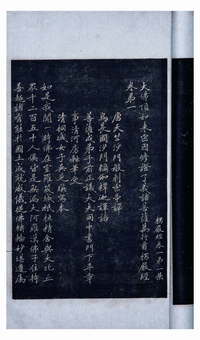 大佛頂如来密因修證了義諸菩薩萬行首楞嚴經
卷第一
唐天竺沙門般剌密帝譯
烏萇國沙門彌伽釋迦譯語
菩薩戒弟子前正議大夫同中書門下平章
事清河房融筆受
清桐城女子吳芝瑛寫本
如是我聞一時佛在室羅筏城祇桓精舍與大比丘
眾千二百五十人俱皆是無漏大阿羅漢佛子住持
善超諸有能於國土成就威儀從佛轉輪妙堪遺囑
楞嚴經卷一第一葉